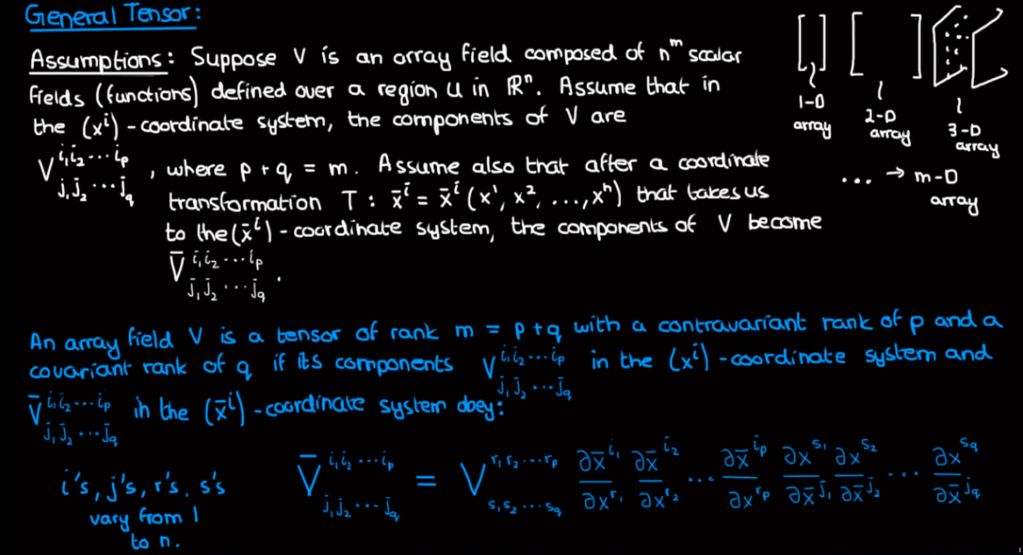 General Tensor:
Assumptions: Suppose V is an array field composed of n^m scalar
fields (functions) defined over a region U in ℝⁿ. Assume that in
the (xⁱ)-coordinate system, the components of V are
V^{i₁i₂⋯iₚ}_{j₁j₂⋯j_q}, where p+q = m. Assume also that after a coordinate
transformation T: x̄ⁱ = x̄ⁱ(x¹, x², ..., xⁿ) that takes us
to the (x̄ⁱ)-coordinate system, the components of V become
V̄^{i₁i₂⋯iₚ}_{j₁j₂⋯j_q}.
1-D
array
2-D
array
3-D
array
... → m-D
array
An array field V is a tensor of rank m = p+q with a contravariant rank of p and a
covariant rank of q if its components V^{i₁i₂⋯iₚ}_{j₁j₂⋯j_q} in the (xⁱ)-coordinate system and
V̄^{i₁i₂⋯iₚ}_{j₁j₂⋯j_q} in the (x̄ⁱ)-coordinate system obey:
i's, j's, r's, s's
vary from 1
to n.
V̄^{i₁i₂⋯iₚ}_{j₁j₂⋯j_q} = V^{r₁r₂⋯rₚ}_{s₁s₂⋯s_q} ∂x̄^{i₁}/∂x^{r₁} ∂x̄^{i₂}/∂x^{r₂} ⋯ ∂x̄^{iₚ}/∂x^{rₚ} ∂x^{s₁}/∂x̄^{j₁} ∂x^{s₂}/∂x̄^{j₂} ⋯ ∂x^{s_q}/∂x̄^{j_q}